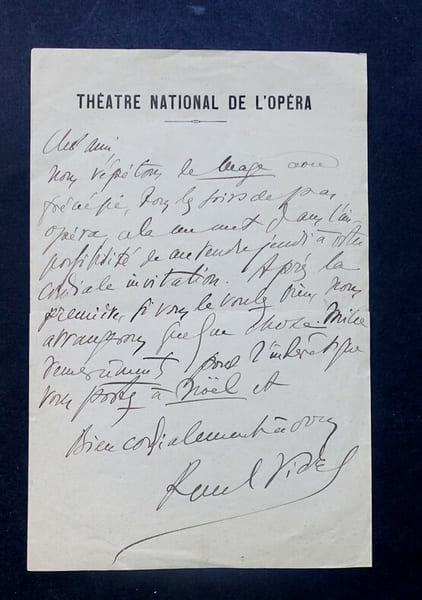 THÉATRE NATIONAL DE L'OPÉRA
Cher ami,
Nous répétons le Mage avec
frénésie, tous les soirs de pas
opéra, cela me met dans l'im
possibilité de me rendre jeudi à votre
cordiale invitation. Après la
première, si vous le voulez bien, nous
arrangerons quelque chose. Mille
remerciements pour l'intérêt que
vous portez à Noël et
Bien cordialement à vous
Paul Vidal